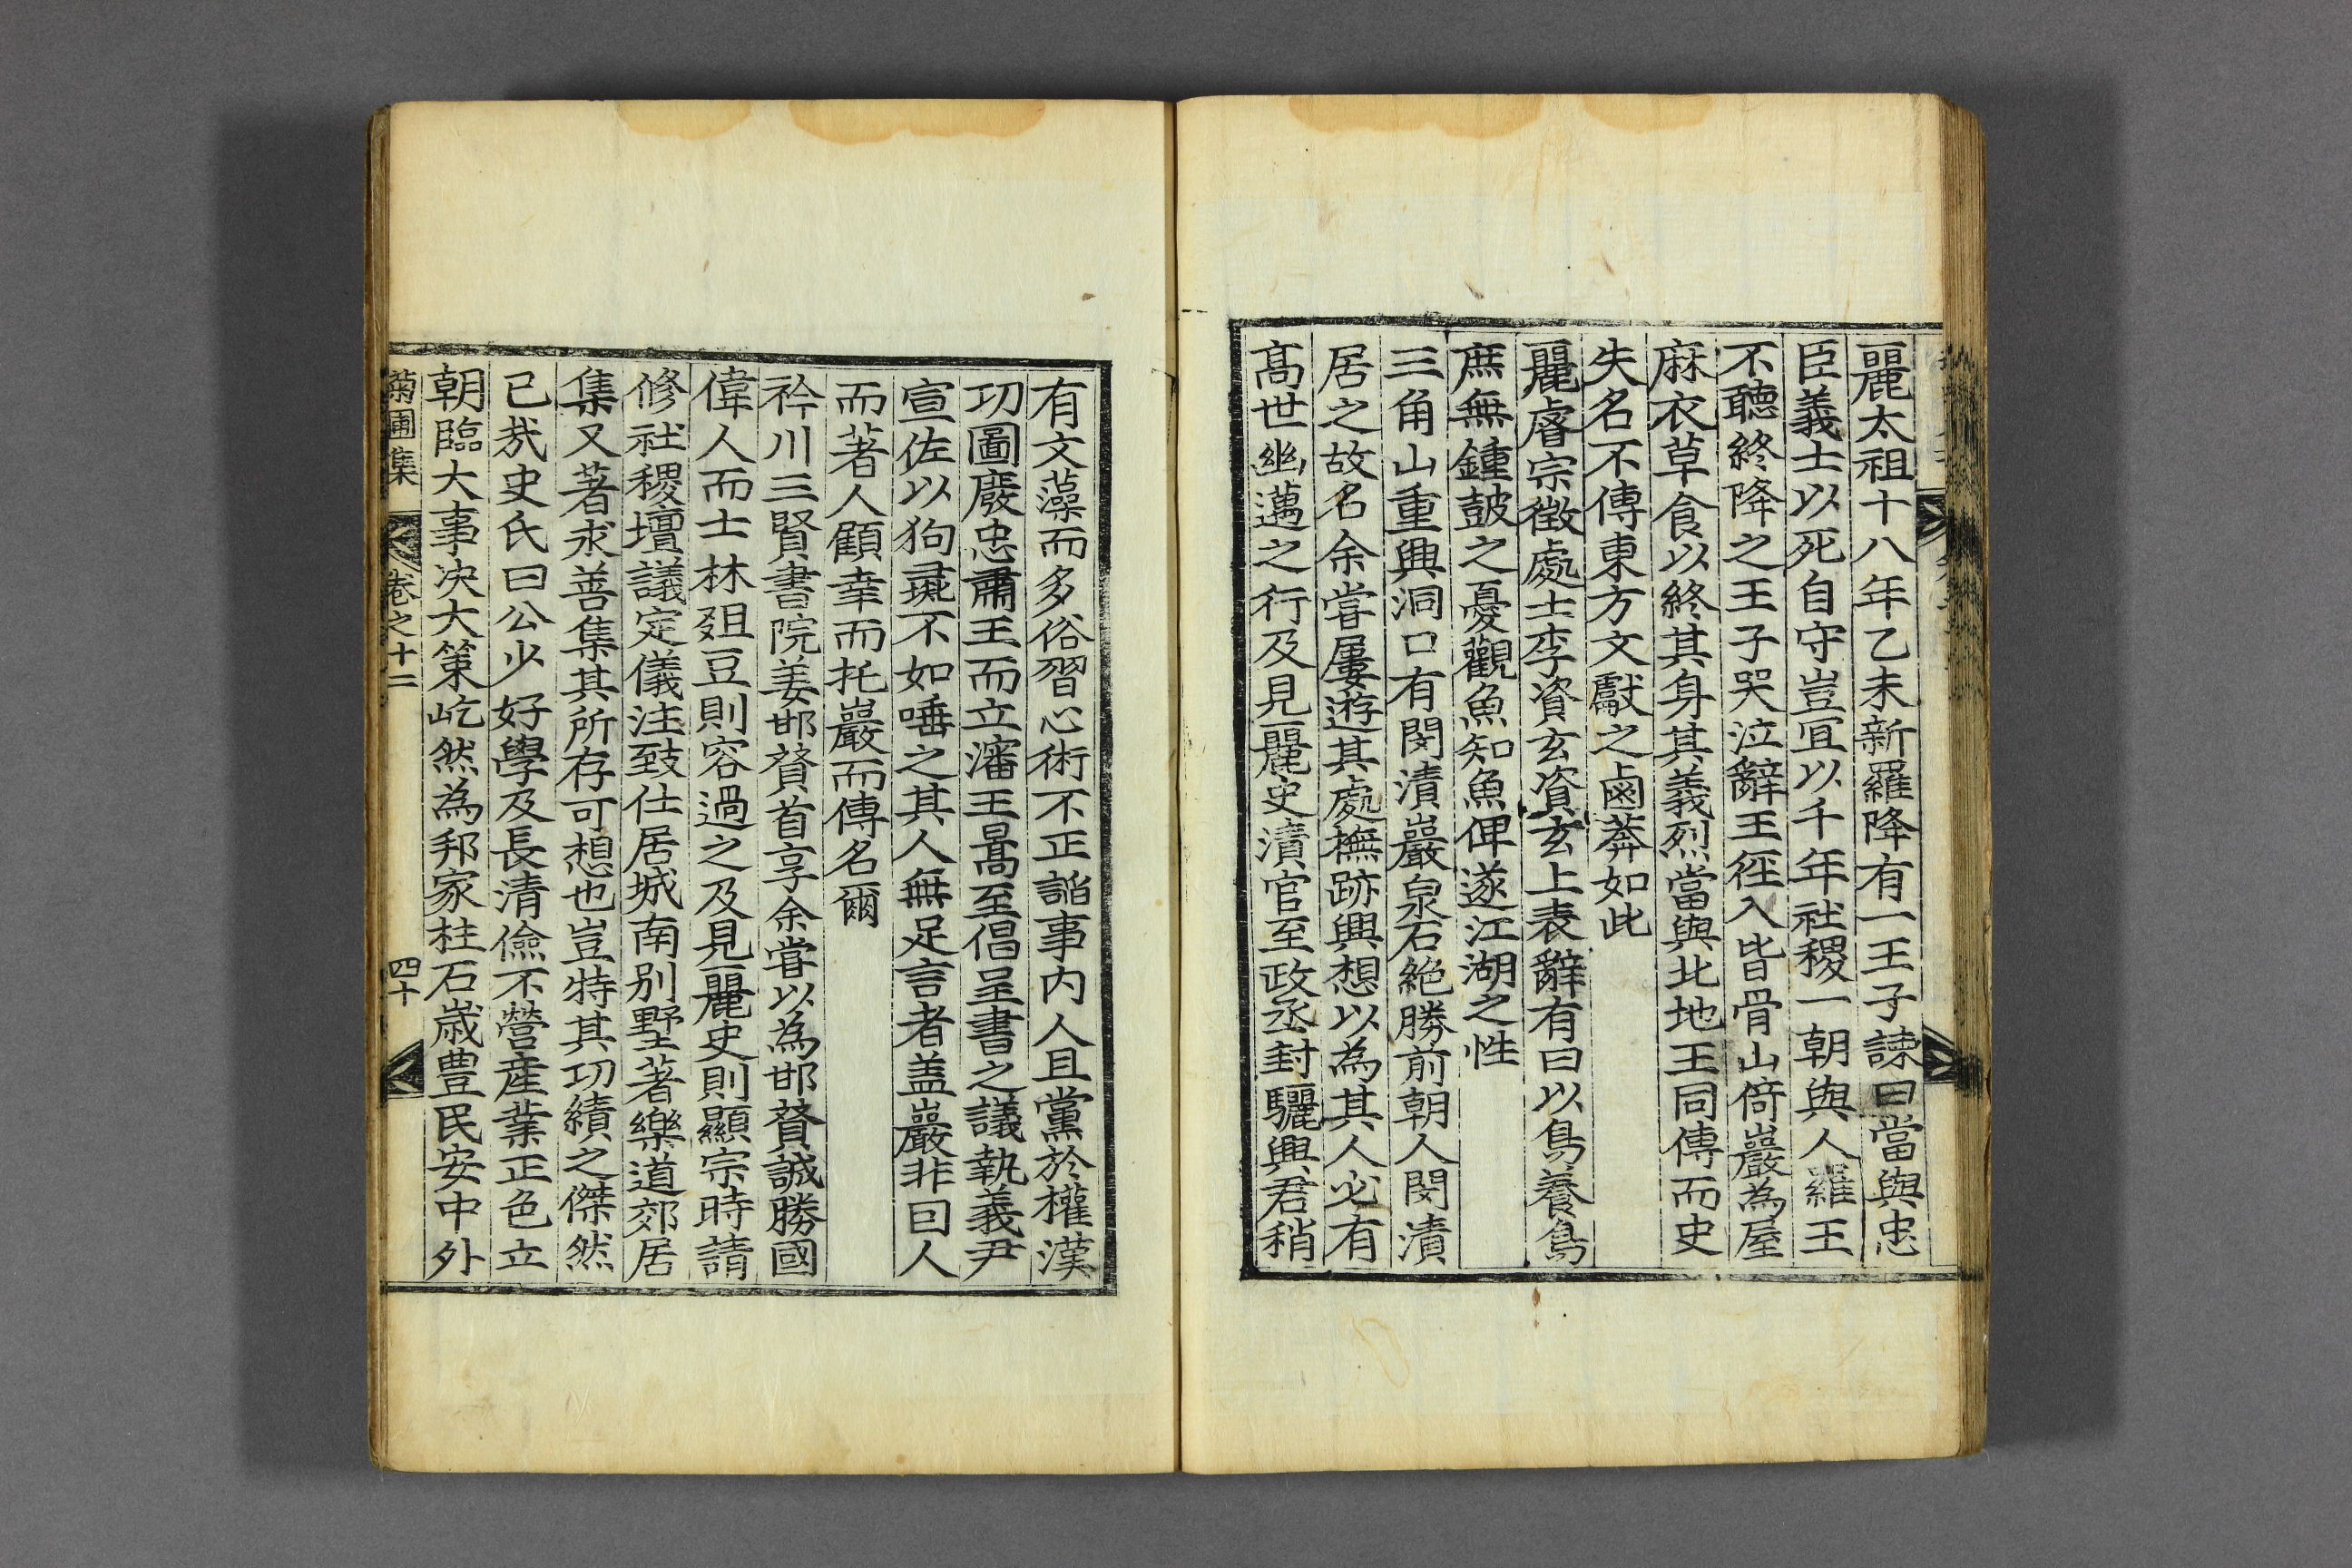 麗太祖十八年乙未新羅降有一王子諫曰當與忠
臣義士以死自守豈冝以千年社稷一朝與人羅王
不聽終降之王子哭泣辭王徑入皆骨山倚巖為屋
麻衣草食以終其身其義烈當與北地王同傳而史
失名不傳東方文獻之鹵莽如此
麗睿宗徵處士李資玄資玄上表辭有曰以鳥養鳥
庶無鍾皷之憂觀魚知魚俾遂江湖之性
三角山重興洞口有閔漬巖泉石絶勝前朝人閔漬
居之故名余嘗屢遊其處撫跡興想以為其人必有
高世幽邁之行及見麗史漬官至政丞封驪興君稍
有文藻而多俗習心術不正謟事内人且黨於權漢
功圖廢忠肅王而立瀋王暠至倡呈書之議執義尹
宣佐以狗彘不如唾之其人無足言者盖巖非因人
而著人顧幸而托巖而傳名爾
衿川三賢書院姜邯贊首享余嘗以為邯贊誠勝國
偉人而士林爼豆則容過之及見麗史則顯宗時請
修社稷壇議定儀注致仕居城南别墅著樂道郊居
集又著求善集其所存可想也豈特其功績之傑然
已㢤史氏曰公少好學及長清儉不營産業正色立
朝臨大事决大策屹然為邦家柱石歳豊民安中外
菊圃集 卷之十二 四十